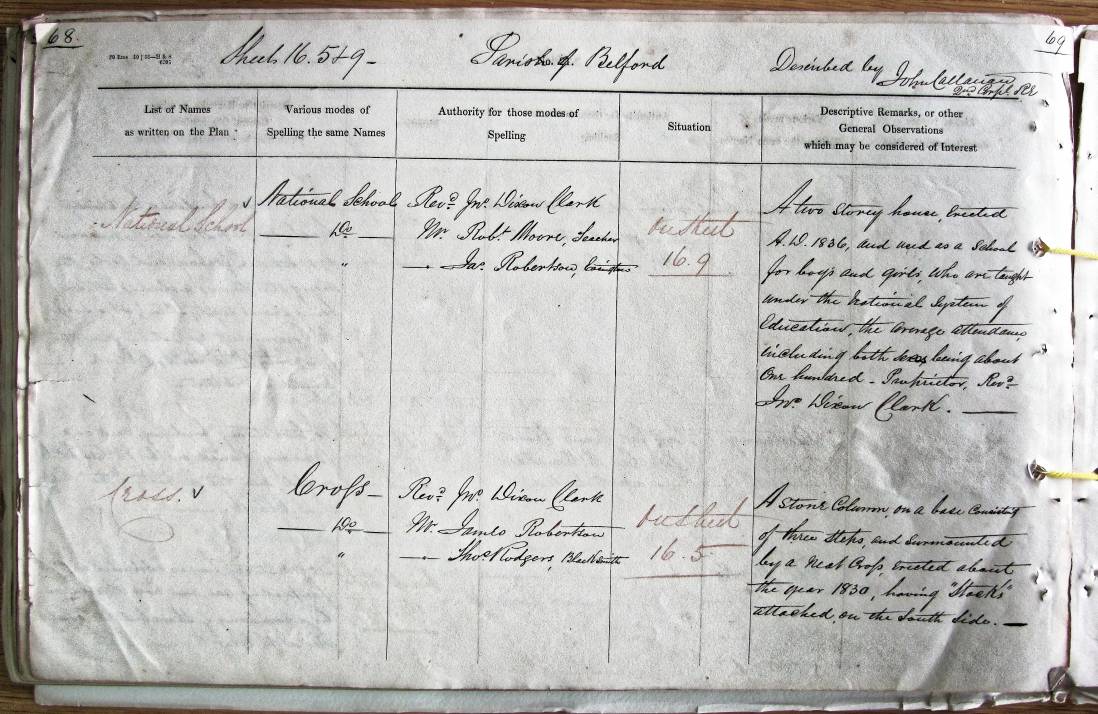 68
69
Sheets 16. 5 & 9 -
Parish of Belford
Described by John Callanan
2nd Corpl RE
List of Names
as written on the Plan
Various modes of
Spelling the same Names
Authority for those modes of
Spelling
Situation
Descriptive Remarks, or other
General Observations
which may be considered of Interest
National School
National School
Do
"
Revd. Jno. Dixon Clark
Mr. Robt. Moore, Teacher
— Jas. Robertson
On Sheet
16. 9
A two Storey house, Erected
A.D. 1836, and used as a School
for boys and girls, who are taught
under the National System of
Education, the average attendance,
including both sexes being about
One hundred - Proprietor, Revd.
Jno. Dixon Clark. —
Cross.
Cross -
Do
"
Revd. Jno. Dixon Clark
Mr. James Robertson
— Thos. Rodgers, Blacksmith
On Sheet
16. 5
A Stone Column, on a base Consistg
of three Steps, and Surmounted
by a Neat Cross, Erected about
the year 1830, having "Stocks"
attached, on the South Side. —